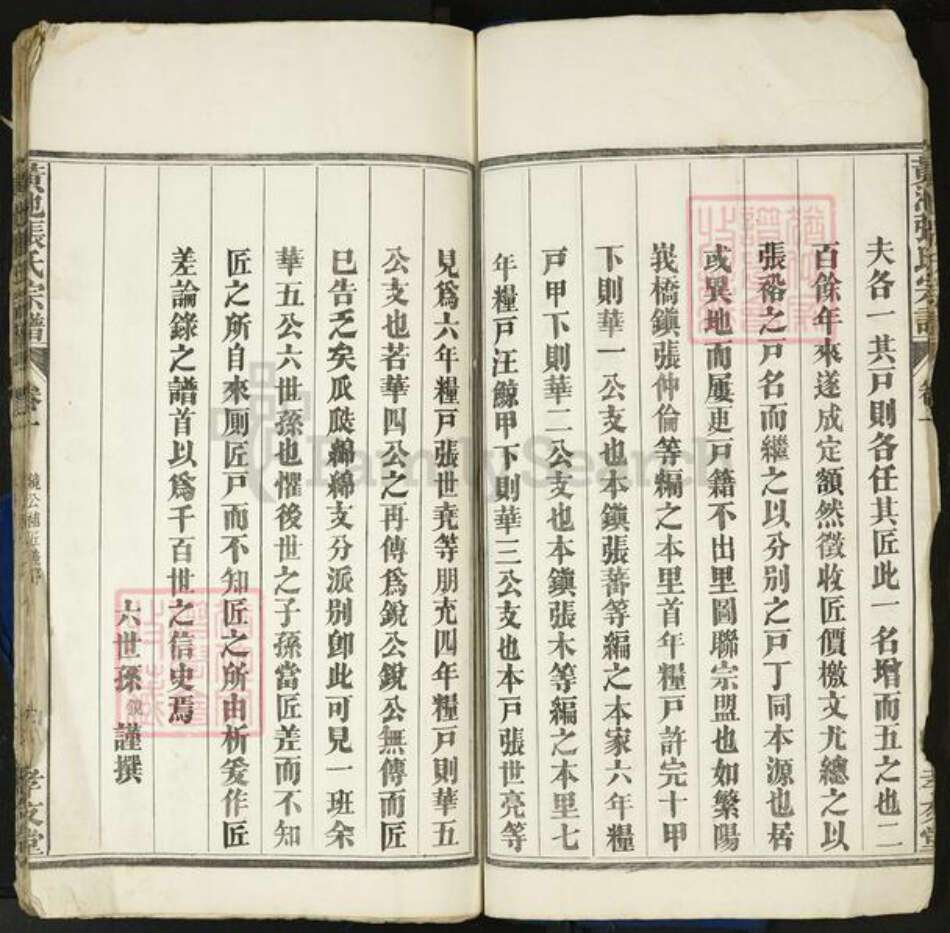 黃池張氏宗譜
卷一
孝友堂
夫各一其戸則各任其匠此一名增而五之也二
百餘年來遂成定額然徵收匠價檄文尤總之以
張裕之戸名而繼之以分别之戸丁同本源也居
或異地而屢更戸籍不出里圖聯宗盟也如繁陽
峩橋鎭張仲倫等編之本里首年糧戸許完十甲
下則華一公支也本鎭張蕃等編之本家六年糧
戸甲下則華二公支也本鎭張木等編之本里七
年糧戸汪鯨甲下則華三公支也本戸張世亮等
見爲六年糧戸張世堯等朋充四年糧戸則華五
公支也若華四公之再傳爲銳公銳公無傳而匠
已告乏矣瓜瓞綿綿支分派别卽此可見一班余
華五公六世孫也懼後世之子孫當匠差而不知
匠之所自來厠匠戸而不知匠之所由析爰作匠
差論錄之譜首以爲千百世之信史焉
六世孫 鏡 謹撰
黃池張氏宗譜
卷一
孝友堂
FamilySearch